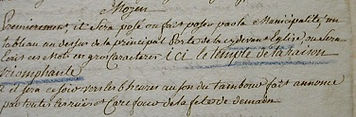 Moyen
Premierement, il sera posé ou fait poser par la Municipalité, un
tableau au dessus de la principal Porte de la cy devant Eglise, ou sera
Ecrit ces Mots en gros caractere ici le temple de la raison
triomphante
il sera ce soir vers les 6 heures au son du tambour fait annonce
par tout carrefour de la fete de demain